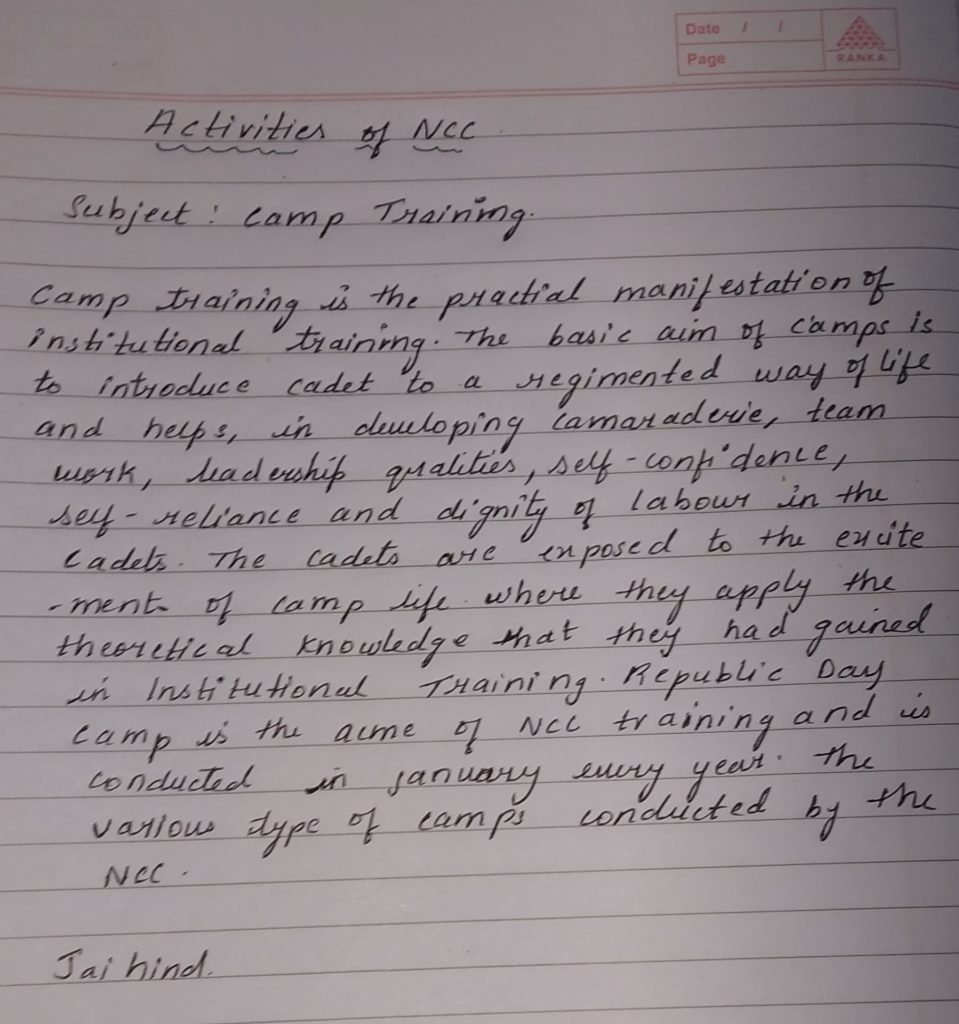 Date / /
Page
RANKA
Activities of NCC
Subject : Camp Training.
Camp training is the practial manifestation of
institutional training. The basic aim of camps is
to introduce cadet to a regimented way of life
and helps, in developing camaraderie, team
work, leadership qualities, self-confidence,
self-reliance and dignity of labour in the
cadets. The cadets are exposed to the excite
-ment of camp life where they apply the
theoretical knowledge that they had gained
in Institutional Training. Republic Day
camp is the acme of NCC training and is
conducted in january every year. The
various type of camps conducted by the
NCC.
Jai hind.